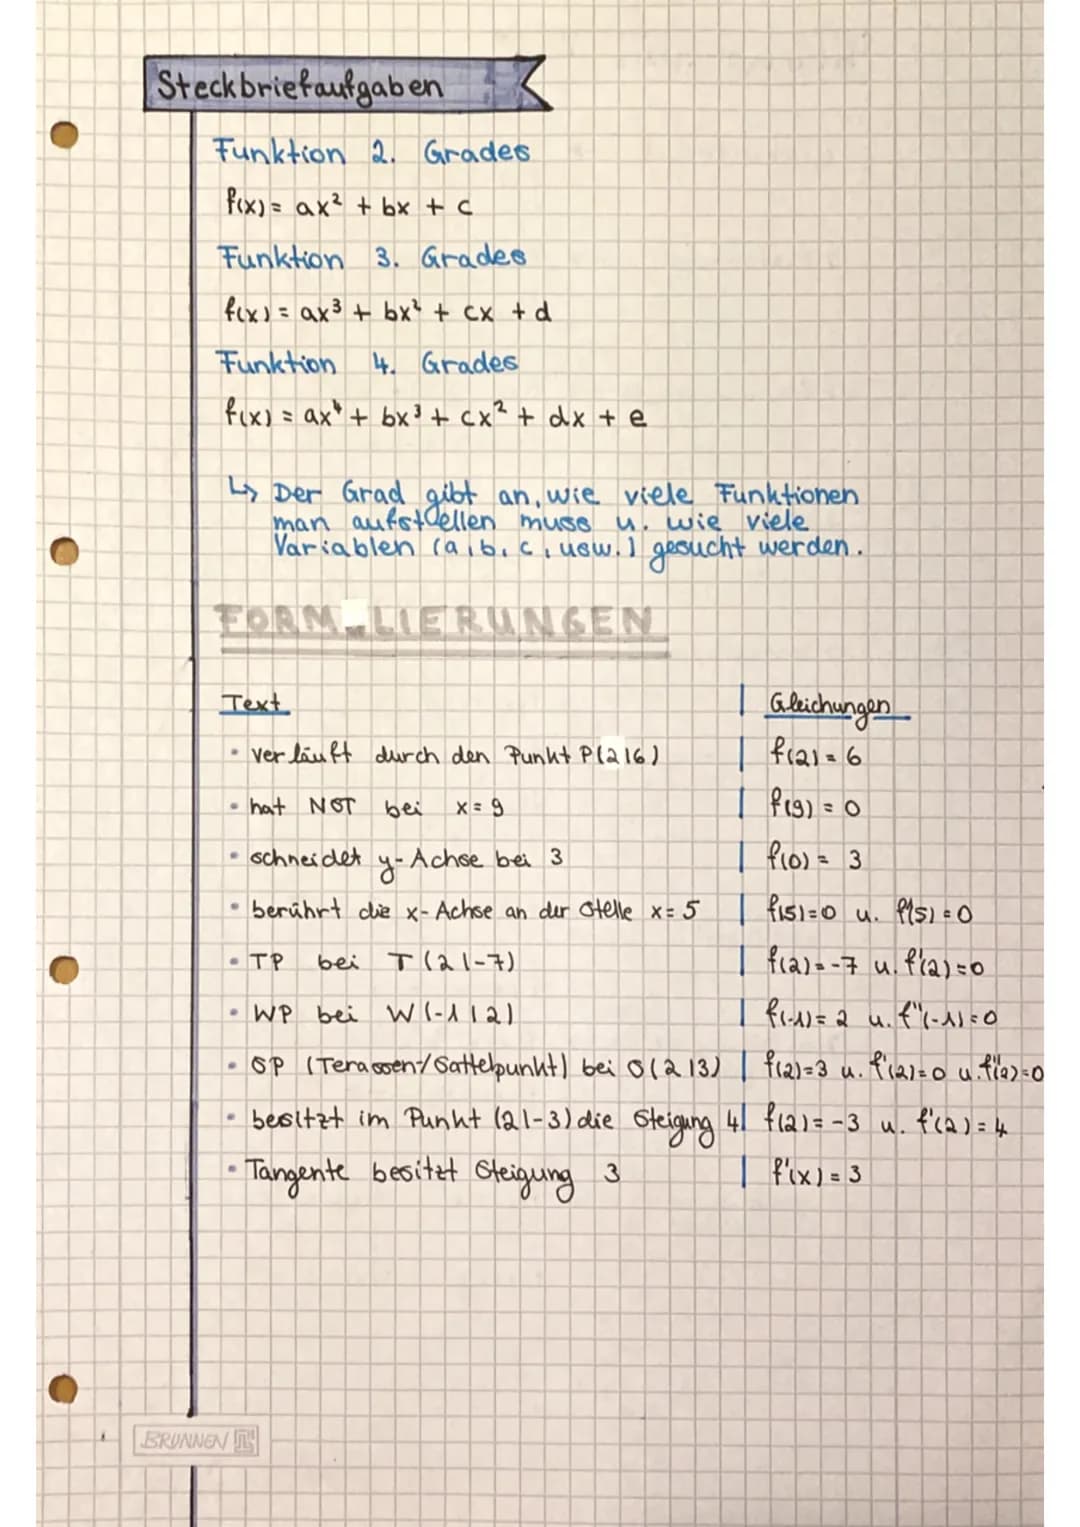 Steckbriefaufgaben
Funktion 2. Grades
f(x) = ax² + bx + c
Funktion 3. Grades
f(x) = ax³ + bx² + cx + d
Funktion 4. Grades
f(x) = ax⁴ + bx³ + cx² + dx + e
↳ Der Grad gibt an, wie viele Funktionen
man aufstellen muss u. wie viele
Variablen (a, b, c, usw.) gesucht werden.
FORMULIERUNGEN
Text | Gleichungen
• verläuft durch den Punkt P(2|6) | f(2) = 6
• hat NST bei x = 9 | f(9) = 0
• schneidet y-Achse bei 3 | f(0) = 3
• berührt die x-Achse an der Stelle x = 5 | f(5)=0 u. f'(5) = 0
• TP bei T(2|-7) | f(2) = -7 u. f'(2) = 0
• WP bei W(-1|2) | f(-1) = 2 u. f''(-1) = 0
• SP (Terassen-/Sattelpunkt) bei S(2|3) | f(2)=3 u. f'(2)=0 u. f''(2)=0
• besitzt im Punkt (2|-3) die Steigung 4 | f(2) = -3 u. f'(2) = 4
• Tangente besitzt Steigung 3 | f'(x) = 3
BRUNNEN